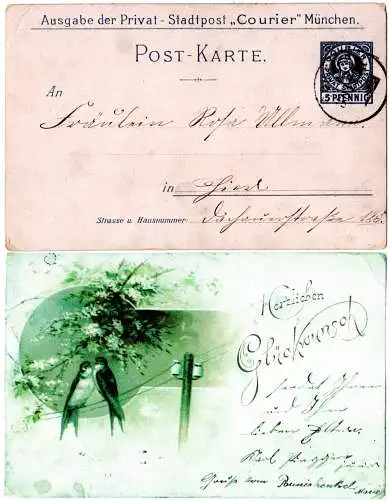 Ausgabe der Privat-Stadtpost „Courier“ München.
POST-KARTE.
5 PFENNIG
An
Fräulein Rosa Ullmann
in Hier
Strasse u. Hausnummer: Dachauerstraße
Herzlichen
Glückwunsch
sendet Ihnen
und Ihren
lieben Eltern
Karl
Gruss vom